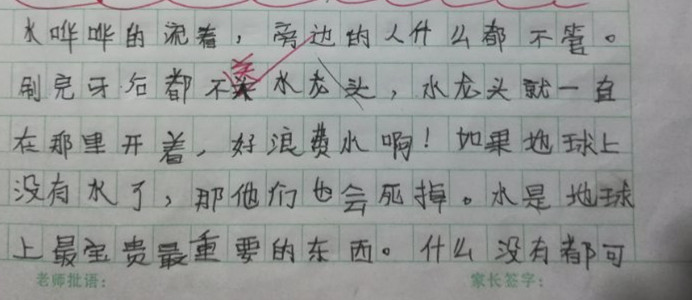 水哗哗的流着，旁边的人什么都不管。
刷完牙后都不关水龙头，水龙头就一直
在那里开着，好浪费水啊！如果地球上
没有水了，那他们也会死掉。水是地球
上最宝贵最重要的东西。什么没有都可
老师批语： 家长签字：